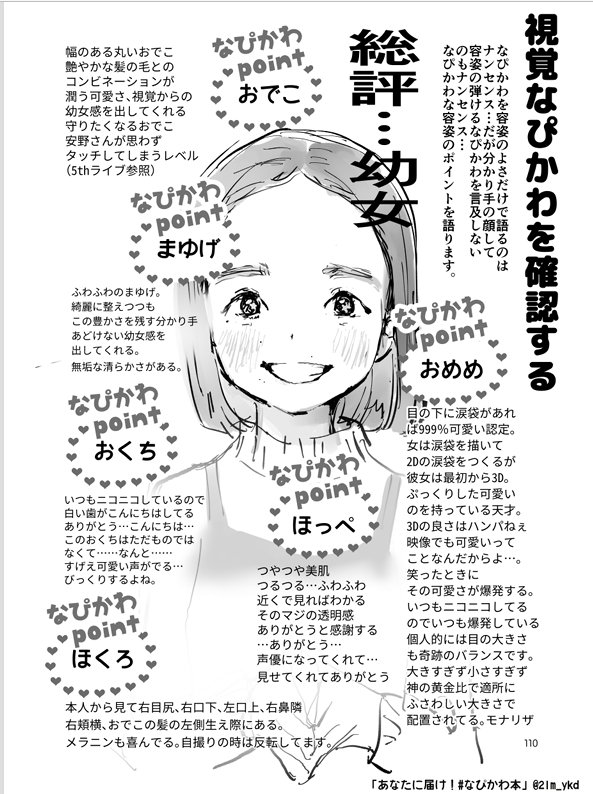 視覚なぴかわを確認する
なぴかわを容姿のよさだけで語るのは
ナンセンス…だが分かり手の顔して
容姿の弾けるなぴかわを言及しない
のもナンセンス…
なぴかわな容姿のポイントを語ります。
総評…幼女
なぴかわ
point
おでこ
幅のある丸いおでこ
艶やかな髪の毛との
コンビネーションが
潤う可愛さ、視覚からの
幼女感を出してくれる
守りたくなるおでこ
安野さんが思わず
タッチしてしまうレベル
(5thライブ参照)
なぴかわ
point
まゆげ
ふわふわのまゆげ。
綺麗に整えつつも
この豊かさを残す分かり手
あどけない幼女感を
出してくれる。
無垢な清らかさがある。
なぴかわ
point
おめめ
目の下に涙袋があれ
ば999%可愛い認定。
女は涙袋を描いて
2Dの涙袋をつくるが
彼女は最初から3D。
ぷっくりした可愛い
のを持っている天才。
3Dの良さはハンパねぇ
映像でも可愛いって
ことなんだからよ…。
笑ったときに
その可愛さが爆発する。
いつもニコニコしてる
のでいつも爆発している
個人的には目の大きさ
も奇跡のバランスです。
大きすぎず小さすぎず
神の黄金比で適所に
ふさわしい大きさで
配置されてる。モナリザ
なぴかわ
point
おくち
いつもニコニコしているので
白い歯がこんにちはしてる
ありがとう…こんにちは…
このおくちはただものでは
なくて……なんと……
すげえ可愛い声がでる…
びっくりするよね。
なぴかわ
point
ほっぺ
つやつや美肌
つるつる…ふわふわ
近くで見ればわかる
そのマジの透明感
ありがとうと感謝する
…ありがとう…
声優になってくれて…
見せてくれてありがとう
なぴかわ
point
ほくろ
本人から見て右目尻、右口下、左口上、右鼻隣
右頬横、おでこの髪の左側生え際にある。
メラニンも喜んでる。自撮りの時は反転してます。
110
「あなたに届け!#なぴかわ本」@21m_ykd